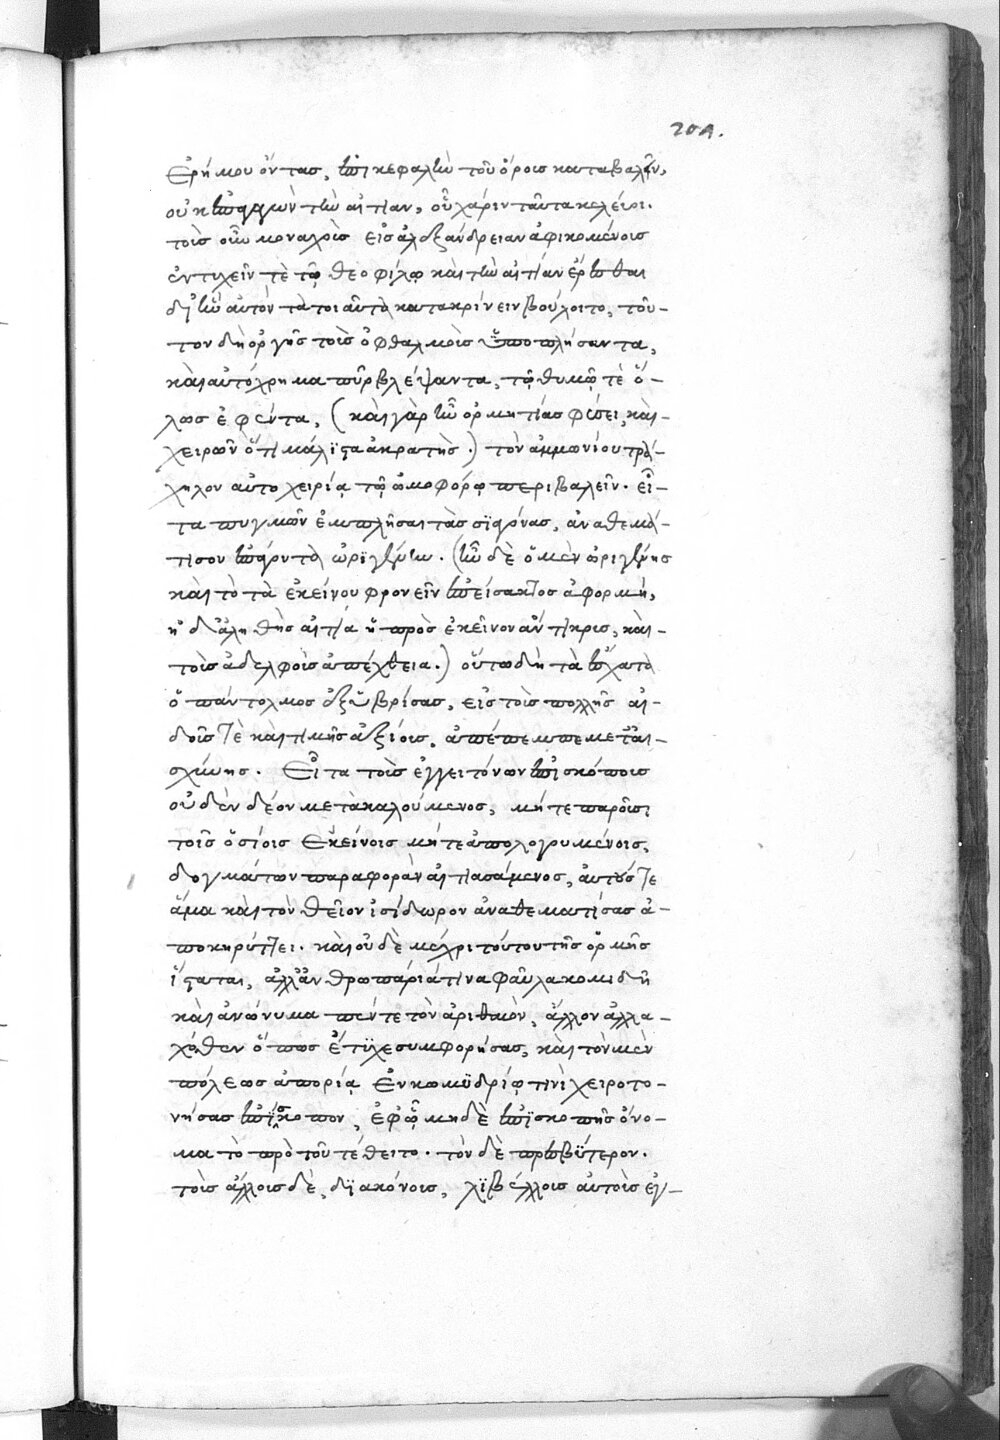 201.
ἐρήμου ὄντας, ἐπὶ κεφαλὴν τοῦ ὄρους καταβαλεῖν,
οὐκ ἐπαγαγὼν τὴν αἰτίαν, οὗ χάριν ταῦτα κελεύει.
τοῖς οὖν μοναχοῖς εἰς ἀλεξάνδρειαν ἀφικομένοις
ἐντυχεῖν τὲ τῷ θεοφίλῳ καὶ τὴν αἰτίαν ἔρεσθαι
δι' ἣν αὐτὸν τὰ τοιαῦτα κατακρίνειν βούλοιτο, τοῦ-
τον δὴ ὀργῆς τοῖς ὀφθαλμοῖς ὑποπλήσαντα,
καὶ αὐτόχρημα πῦρ βλέψαντα, τῷ θυμῷ τὲ ὅ-
λως ἐφέντα, (καὶ γὰρ ἦν ὁρμητίας φύσει, καὶ
χειρῶν ὅτι μάλιστα ἀκρατὴς.) τὸν ἀμμωνίου τρά-
χηλον αὐτοχειρίᾳ τῷ ὠμοφόρῳ περιβαλεῖν. εἶ-
τα πυγμῶν ἐμπλῆσαι τὰς σιαγόνας, ἀναθεμά-
τισον ἐπάγοντα ὠριγένην. (ἦν δὲ ὁ μὲν ὠριγένης
καὶ τὸ τὰ ἐκείνου φρονεῖν ἐπείσακτος ἀφορμή,
ἡ δ' ἀληθὴς αἰτία ἡ πρὸς ἐκεῖνον ἄντικρις, καὶ
τοῖς ἀδελφοῖς ἀπέχθεια.) οὕτω δὴ τὰ ἔσχατα
ὁ πάντολμος ἐξυβρίσας, εἰς τοὺς πολλῆς αἰ-
δοῦς τὲ καὶ τιμῆς ἀξίοις, ἀπέπεμπε μετ' αἰ-
σχύνης. Εἶτα τοὺς ἐγγειτόνων ἐπισκόποις
οὐδὲν δέον μετακαλούμενος, μήτε παροῦσι
τοῖς ὁσίοις ἐκείνοις μήτε ἀπολογουμένοις,
δογμάτων παραφορὰν αἰτιασάμενος, αὐτούς τε
ἅμα καὶ τὸν θεῖον ἰσίδωρον ἀναθεματίσας ἀ-
ποκηρύττει. καὶ οὐδὲ μέχρι τούτου τῆς ὁρμῆς
ἵσταται, ἀλλ' ἀνθρωπάριά τινα φαῦλα κομιδῆ
καὶ ἀνώνυμα πέντε τὸν ἀριθμὸν, ἄλλον ἀλλα-
χόθεν ὅπως ἔτυχε συμφορήσας, καὶ τὸν μὲν
πόλεως ἀπορίᾳ ἐν κωμυδρίῳ τινὶ χειροτο-
νήσας ἐπίσκοπον, ἐφ' ᾧ μηδὲ ἐπισκοπῆς ὄνο-
μα τὸ πρὸ τοῦ τέθειτο. τὸν δὲ πρεσβύτερον.
τοὺς ἄλλοις δὲ, διακόνοις, λιβέλλοις αὐτοῖς ἐγ-